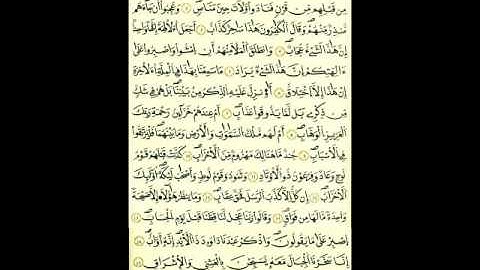 مِن قَبْلِهِم مِّن قَرْنٍ فَنَادَوا۟ وَّلَاتَ حِينَ مَنَاصٍ ٣ وَعَجِبُوٓا۟ أَن جَآءَهُم
مُّنذِرٌ مِّنْهُمْ وَقَالَ ٱلْكَٰفِرُونَ هَٰذَا سَٰحِرٌ كَذَّابٌ ٤ أَجَعَلَ ٱلْءَالِهَةَ إِلَٰهًا وَٰحِدًا
إِنَّ هَٰذَا لَشَىْءٌ عُجَابٌ ٥ وَٱنطَلَقَ ٱلْمَلَأُ مِنْهُمْ أَنِ ٱمْشُوا۟ وَٱصْبِرُوا۟ عَلَىٰٓ
ءَالِهَتِكُمْ إِنَّ هَٰذَا لَشَىْءٌ يُرَادُ ٦ مَا سَمِعْنَا بِهَٰذَا فِى ٱلْمِلَّةِ ٱلْءَاخِرَةِ
إِنْ هَٰذَآ إِلَّا ٱخْتِلَٰقٌ ٧ أَءُنزِلَ عَلَيْهِ ٱلذِّكْرُ مِنۢ بَيْنِنَا بَلْ هُمْ فِى شَكٍّ
مِّن ذِكْرِى بَل لَّمَّا يَذُوقُوا۟ عَذَابِ ٨ أَمْ عِندَهُمْ خَزَآئِنُ رَحْمَةِ رَبِّكَ
ٱلْعَزِيزِ ٱلْوَهَّابِ ٩ أَمْ لَهُم مُّلْكُ ٱلسَّمَٰوَٰتِ وَٱلْأَرْضِ وَمَا بَيْنَهُمَا فَلْيَرْتَقُوا۟
فِى ٱلْأَسْبَٰبِ ١٠ جُندٌ مَّا هُنَالِكَ مَهْزُومٌ مِّنَ ٱلْأَحْزَابِ ١١ كَذَّبَتْ قَبْلَهُمْ قَوْمُ
نُوحٍ وَعَادٌ وَفِرْعَوْنُ ذُو ٱلْأَوْتَادِ ١٢ وَثَمُودُ وَقَوْمُ لُوطٍ وَأَصْحَٰبُ لْـَٔيْكَةِ أُو۟لَٰٓئِكَ
ٱلْأَحْزَابُ ١٣ إِن كُلٌّ إِلَّا كَذَّبَ ٱلرُّسُلَ فَحَقَّ عِقَابِ ١٤ وَمَا يَنظُرُ هَٰٓؤُلَآءِ إِلَّا صَيْحَةً
وَٰحِدَةً مَّا لَهَا مِن فَوَاقٍ ١٥ وَقَالُوا۟ رَبَّنَا عَجِّل لَّنَا قِطَّنَا قَبْلَ يَوْمِ ٱلْحِسَابِ ١٦
ٱصْبِرْ عَلَىٰ مَا يَقُولُونَ وَٱذْكُرْ عَبْدَنَا دَاوُۥدَ ذَا ٱلْأَيْدِ إِنَّهُۥٓ أَوَّابٌ ١٧
إِنَّا سَخَّرْنَا ٱلْجِبَالَ مَعَهُۥ يُسَبِّحْنَ بِٱلْعَشِىِّ وَٱلْإِشْرَاقِ ١٨